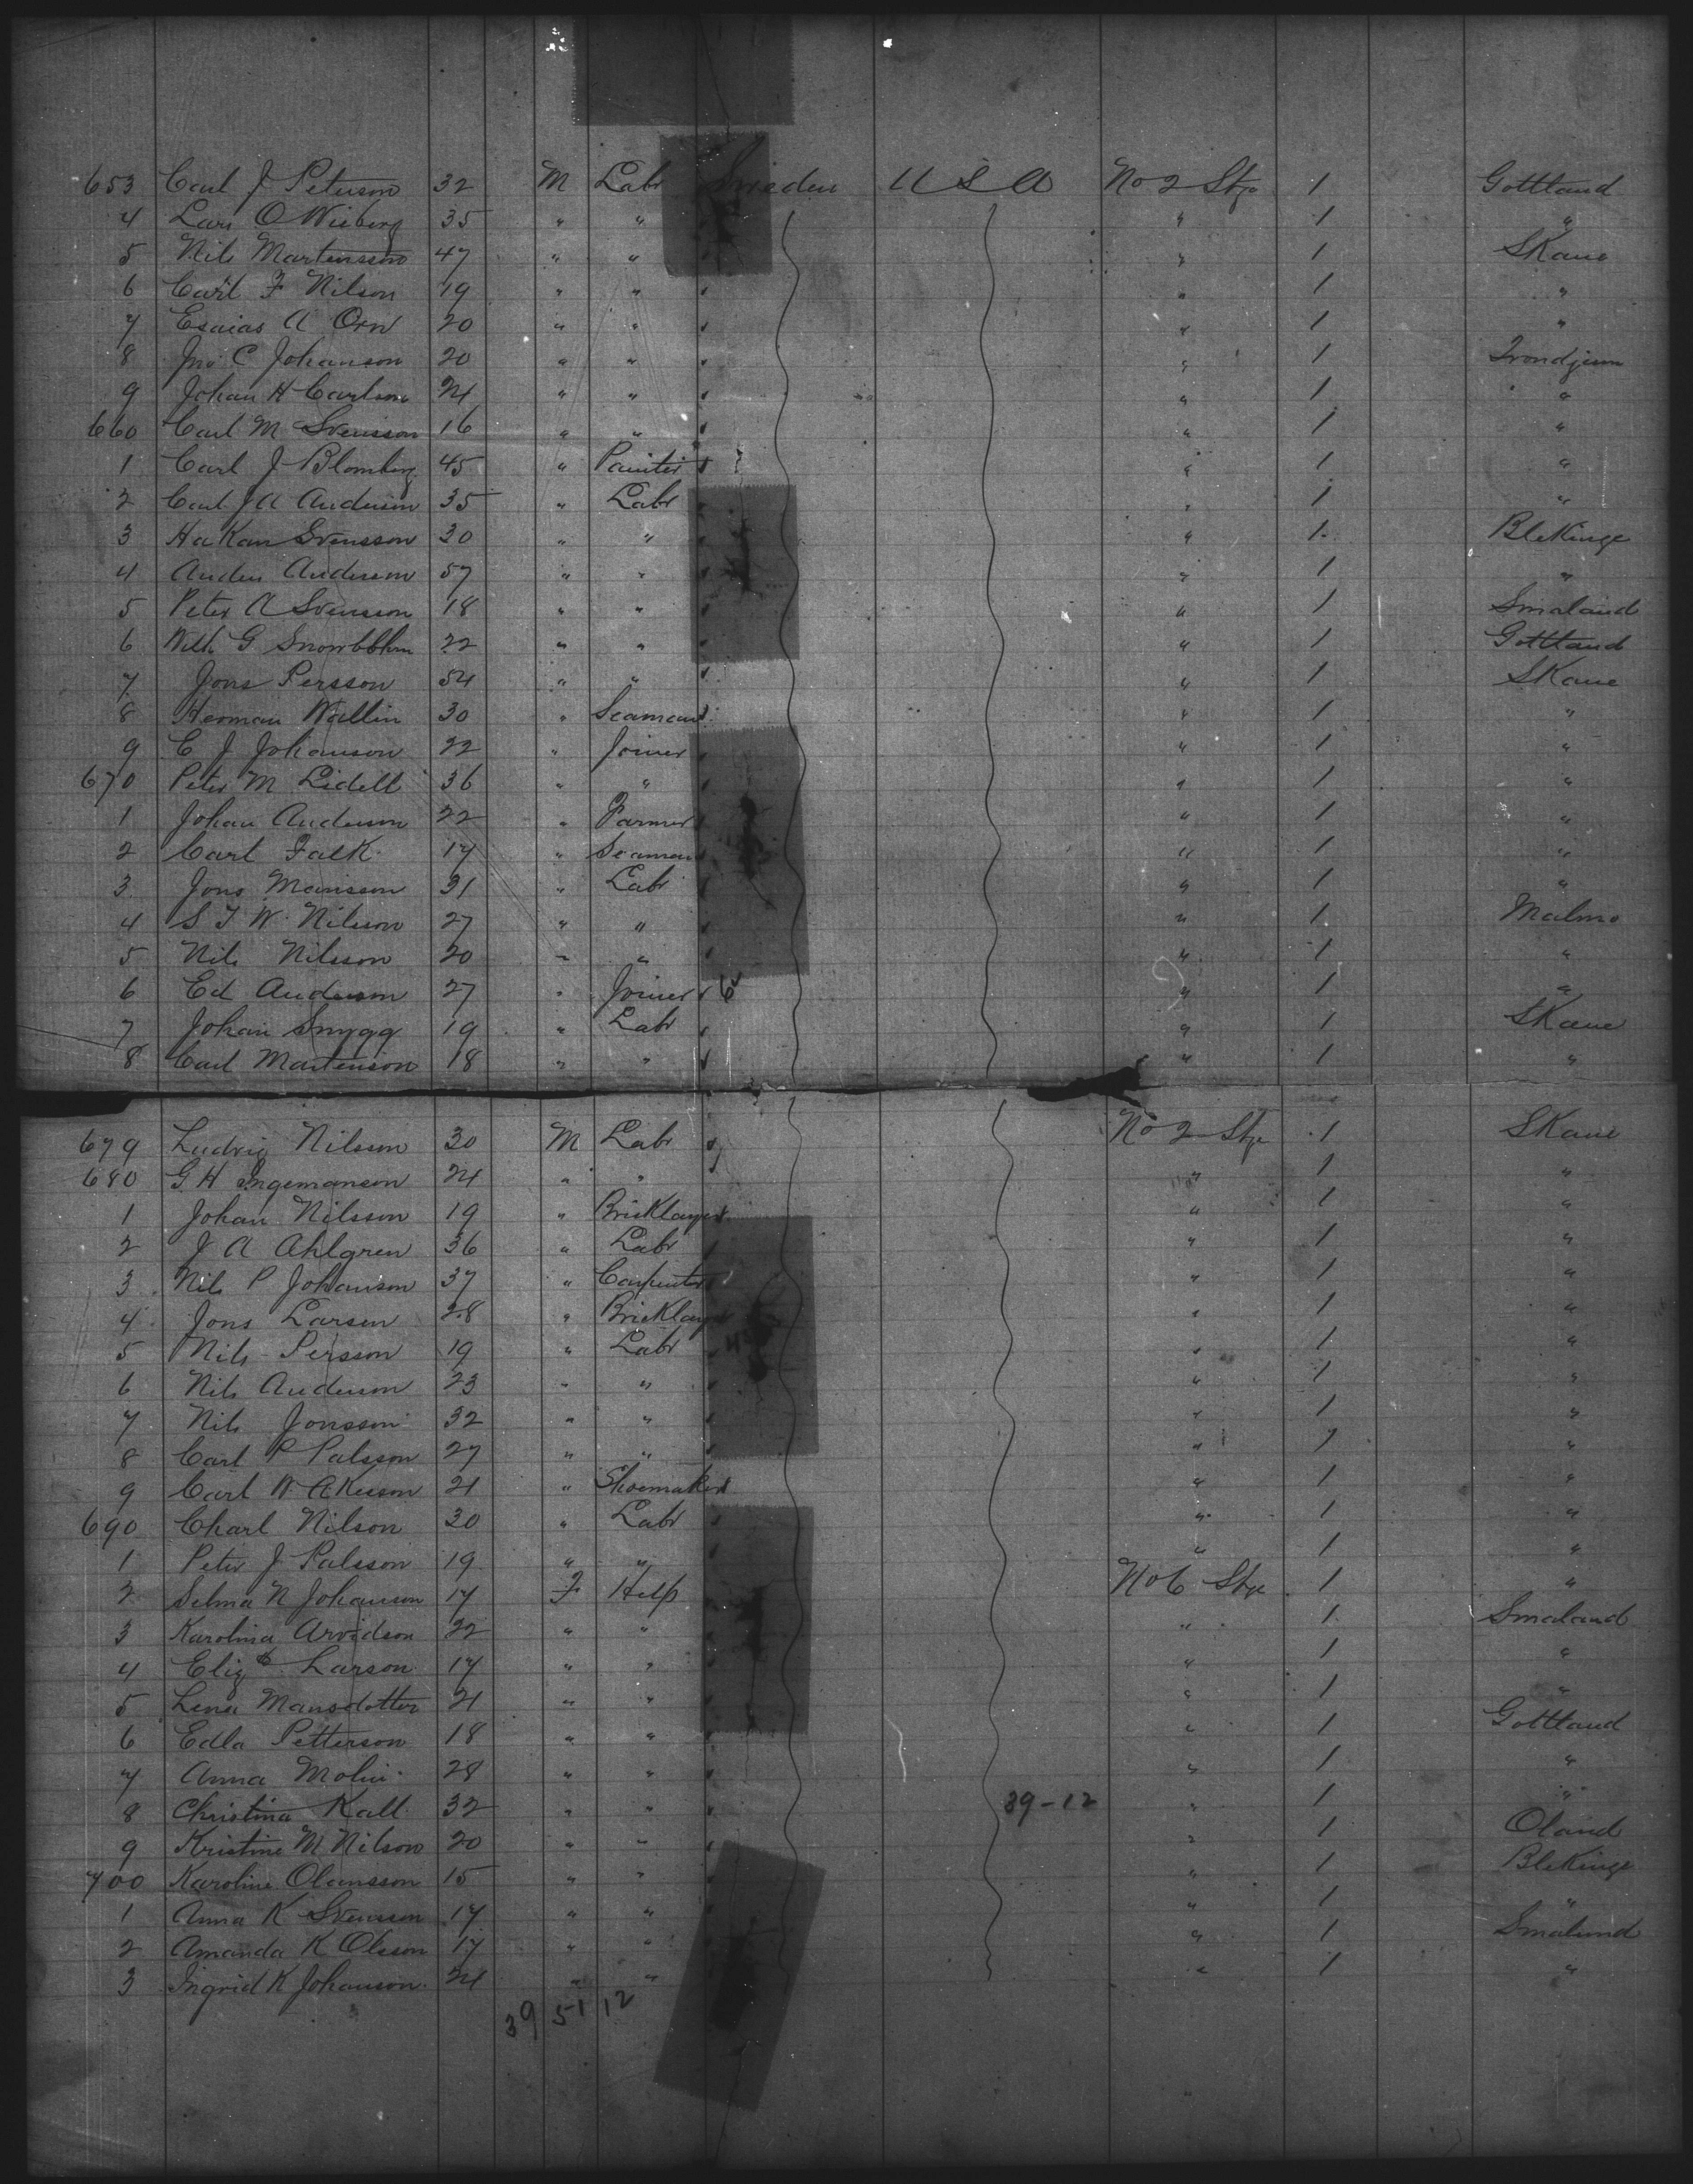 653 Carl J Peterson 32 M Labr Sweden U S A No 2 Stge 1 Gottland
4 Lars O Wisberg 35 " " " 1 "
5 Nils Martensson 47 " " " 1 Skane
6 Carl F Nilson 19 " " " 1 "
7 Esaias A Orn 20 " " " 1 "
8 Jno C Johanson 20 " " " 1 Trondjem
9 Johan H Carlson 24 " " " 1 "
660 Carl M Svensson 16 " " " 1 "
1 Carl J Blomberg 45 " Painter " 1 "
2 Carl J A Anderson 35 " Labr " 1 "
3 Hakan Svensson 30 " " " 1 Blekinge
4 Anders Anderson 57 " " " 1 "
5 Peter A Svensson 18 " " " 1 Smaland
6 G 22 " " " 1 Gottland
7 Jons Persson 54 " " " 1 Skane
8 Herman Wallin 30 " Seaman " 1 "
9 C J Johanson 22 " Joiner " 1 "
670 Peter M Lidell 36 " " " 1 "
1 Johan Anderson 22 " Farmer " 1 "
2 Carl Falk 17 " Seaman " 1 "
3 Jons Mansson 31 " Labr " 1 "
4 S T W Nilsson 27 " " " 1 Malmo
5 Nils Nilsson 20 " " " 1 "
6 Ed Anderson 27 " Joiner " 1 "
7 Johan Snygg 19 " Labr " 1 Skane
8 Carl Martenson 18 " " " 1 "
679 Ludvig Nilsson 30 M Labr No 2 Stge 1 Skane
680 G H Ingemanson 24 " " " 1 "
1 Johan Nilsson 19 " Bricklayer " 1 "
2 J A Ahlgren 36 " Labr " 1 "
3 Nils P Johanson 37 " Carpenter " 1 "
4 Jons Larsen 28 " Bricklayer " 1 "
5 Nils Persson 19 " Labr " 1 "
6 Nils Anderson 23 " " " 1 "
7 Nils Jonsson 32 " " " 1 "
8 Carl P Palsson 27 " " " 1 "
9 Carl W Akesson 21 " Shoemaker " 1 "
690 Charl Nilson 30 " Labr " 1 "
1 Peter J Palsson 19 " " " 1 "
2 Selma N Johanson 17 F Help No 6 Stge 1 "
3 Karolina Arvidson 22 " " " 1 Smaland
4 Eliz Larson 17 " " " 1 "
5 Lena Mansdotter 21 " " " 1 "
6 Edla Petterson 18 " " " 1 Gottland
7 Anna Molin 28 " " " 1 "
8 Christina Kall 32 " " 39-12 " 1 "
9 Kristine M Nilson 20 " " " 1 Oland
700 Karoline Olansson 15 " " " 1 Blekinge
1 Anna K Svensson 17 " " " 1 "
2 Amanda K Olsson 17 " " " 1 Smalund
3 Ingrid K Johanson 24 " " " 1 "
39 51 12